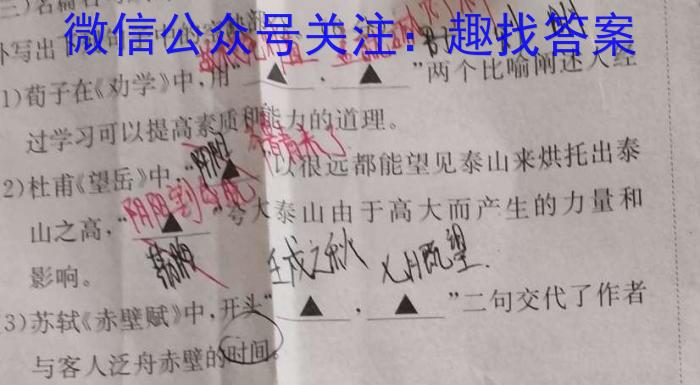 三)名篇
微信公众号关注：趣找答案
补写出
1)荀子在《劝学》中,用“▲,▲”两个比喻阐述人经
过学习可以提高素质和能力的道理。
齐鲁青未了
2)杜甫《望岳》中,“▲”以很远都能望见泰山来烘托出泰
阴阳割昏晓
山之高,“▲”夸大泰山由于高大而产生的力量和
影响。
壬戌之秋 七月既望
3)苏轼《赤壁赋》中,开头“▲,▲”二句交代了作者
与客人泛舟赤壁的时间。